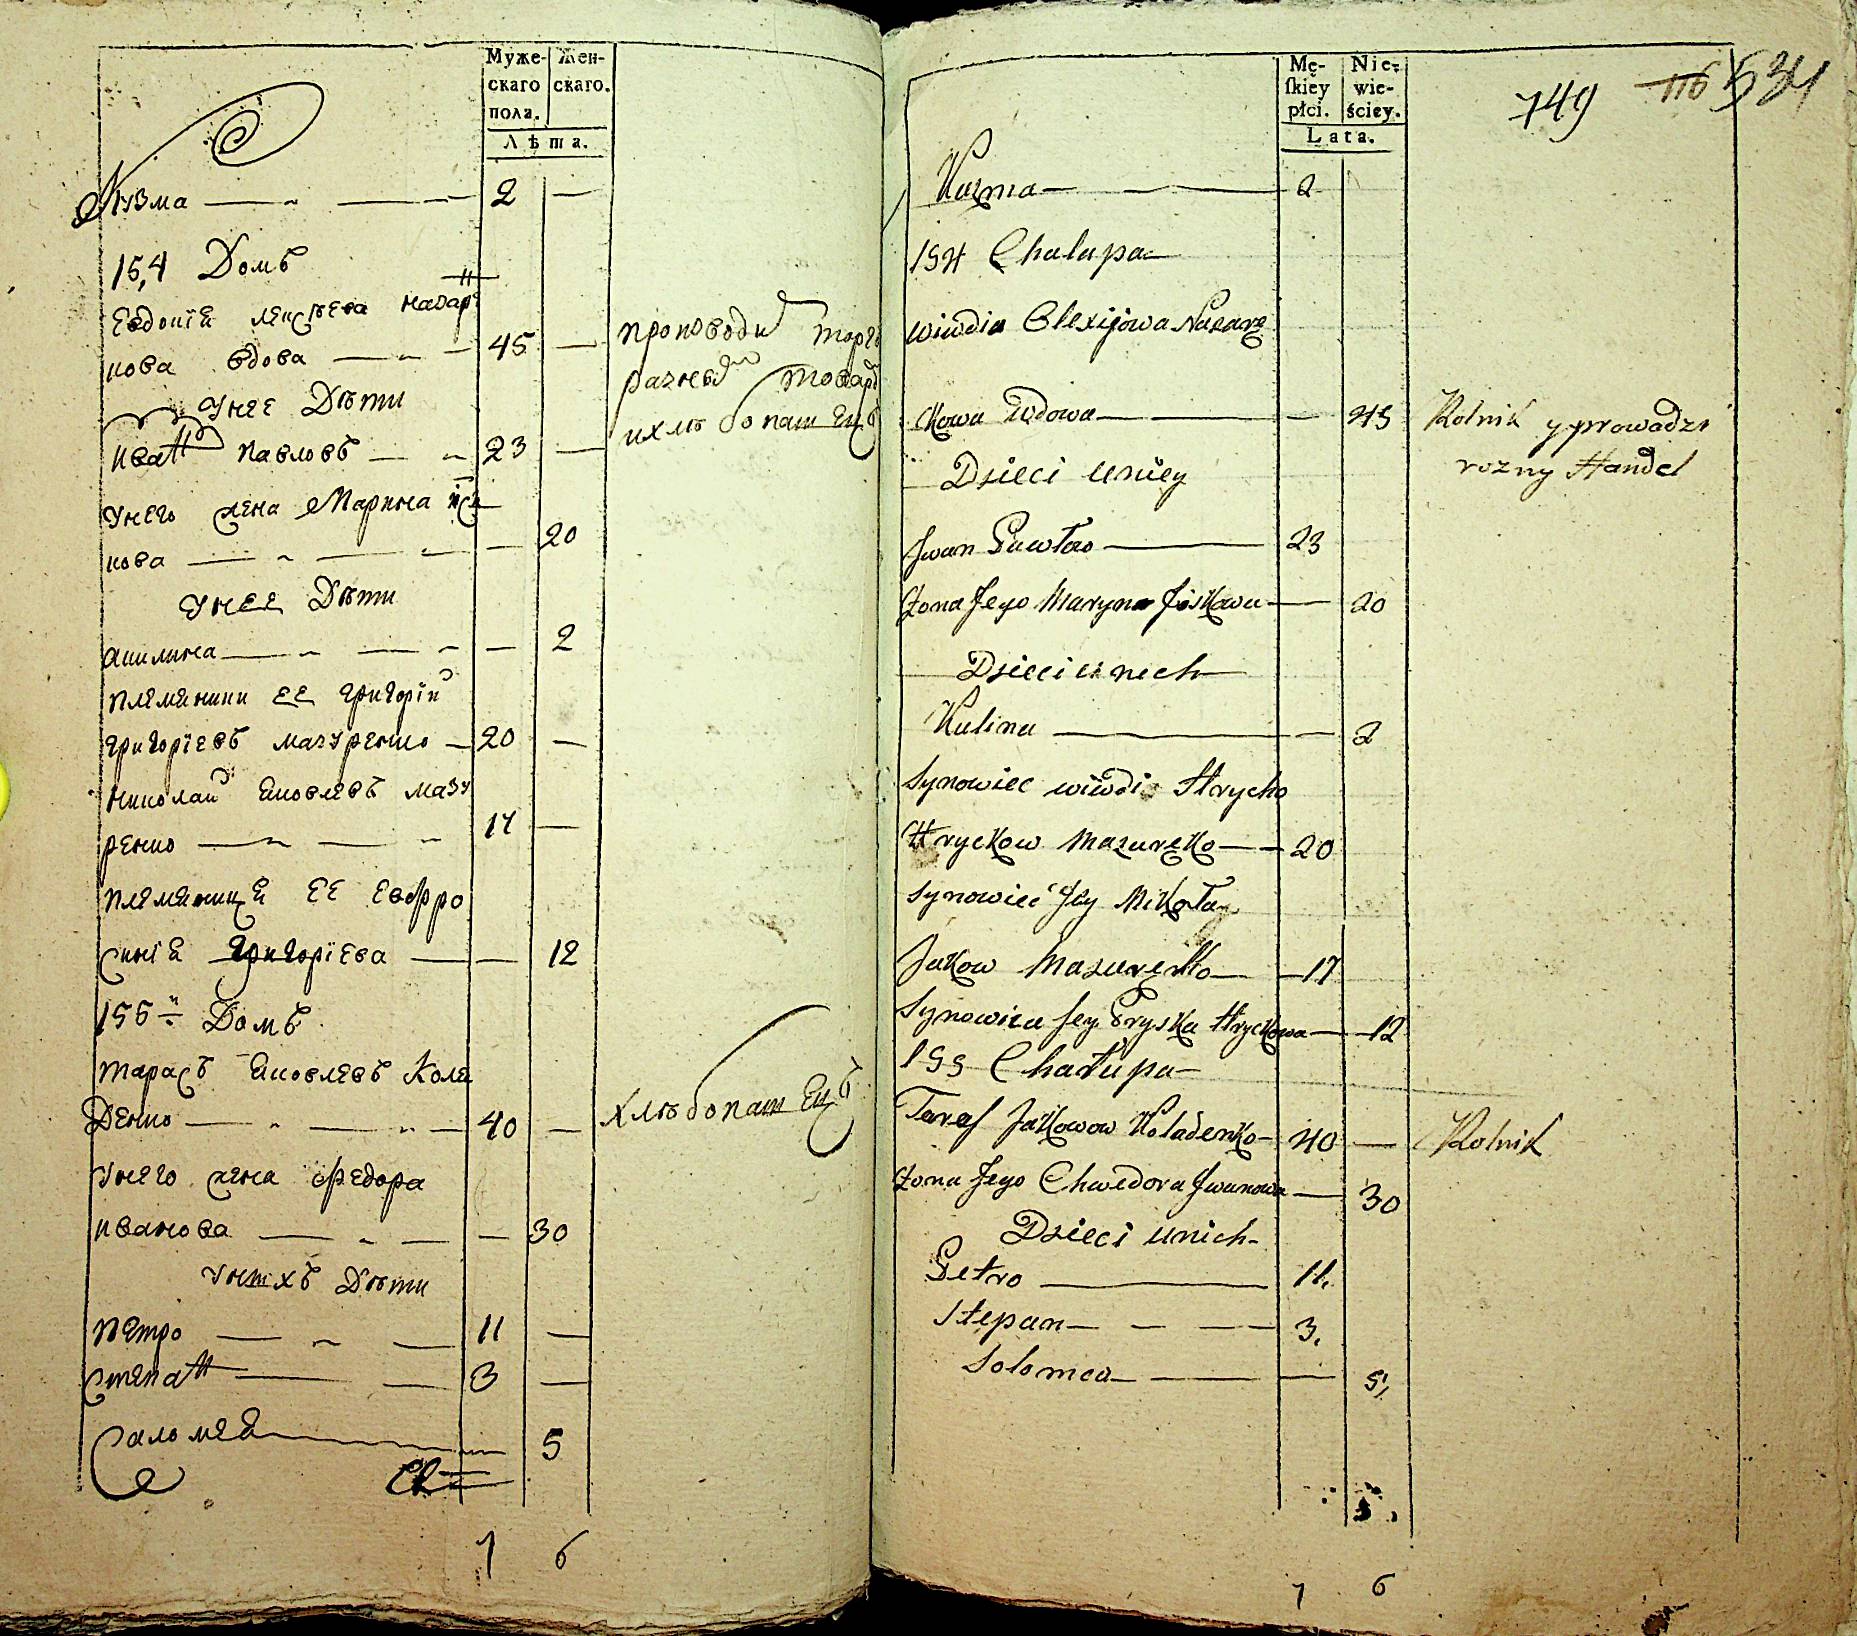 Муже-
скаго
пола.
Жен-
скаго.
Лѣта.
Кузма 2
15,4 Домъ
Евдокїя лексѣева назарѣ
кова вдова 45
производи торгъ
разны товар
и хлѣбопашецъ
У нее Дѣти
Иван Павловъ 23
У него жена Марина їсь
кова 20
У нее Дѣти
акилина 2
племяники ее григорїй
григорїевъ мазуренко 20
николай яковлевъ мазу
ренко 17
племяница ее евфро
синїя григорїева 12
155 й Домъ
тарасъ яковлевъ Коля
Денко 40
хлѣбопашецъ
У него жена федора
иванова 30
У нихъ Дѣти
петро 11
степан 3
саломея 5
7 6
Mę-
ſkiey
płci.
Nie-
wie-
ściey.
Lata.
749 116 534
Kuzma 2
154 Chalupa
Wiwdia Olexijowa Nazarę
Kowa Wdowa 45
Rolnik y prowadzi
rozny Handel
Dzieci u niey
Jwan Pawłow 23
Zona Jego Maryna Jiskowa 20
Dzieci u nich
Kulina 2
Synowiec wiwdi Hrycko
Hryckow Mazuręko 20
Synowiec Jey Mikołay
Jakow Mazurenko 17
Synowica Jey Pryska Hryckowa 12
155 Chałupa
Taraſ Jakowow Koladenko 40
Rolnik
Zona Jego Chwedora Jwanowa 30
Dzieci u nich
Petro 11.
Stepan 3.
Solomea 5.
7 6